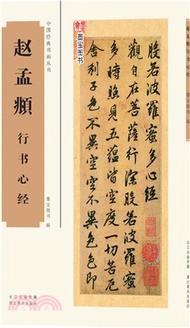 中国经典书画丛书
赵孟頫
行书心经
墨宝图书
般若波羅蜜多心經
觀自在菩薩行深般若波羅蜜
多時照見五蘊皆空度一切苦厄
舍利子色不異空空不異色色即